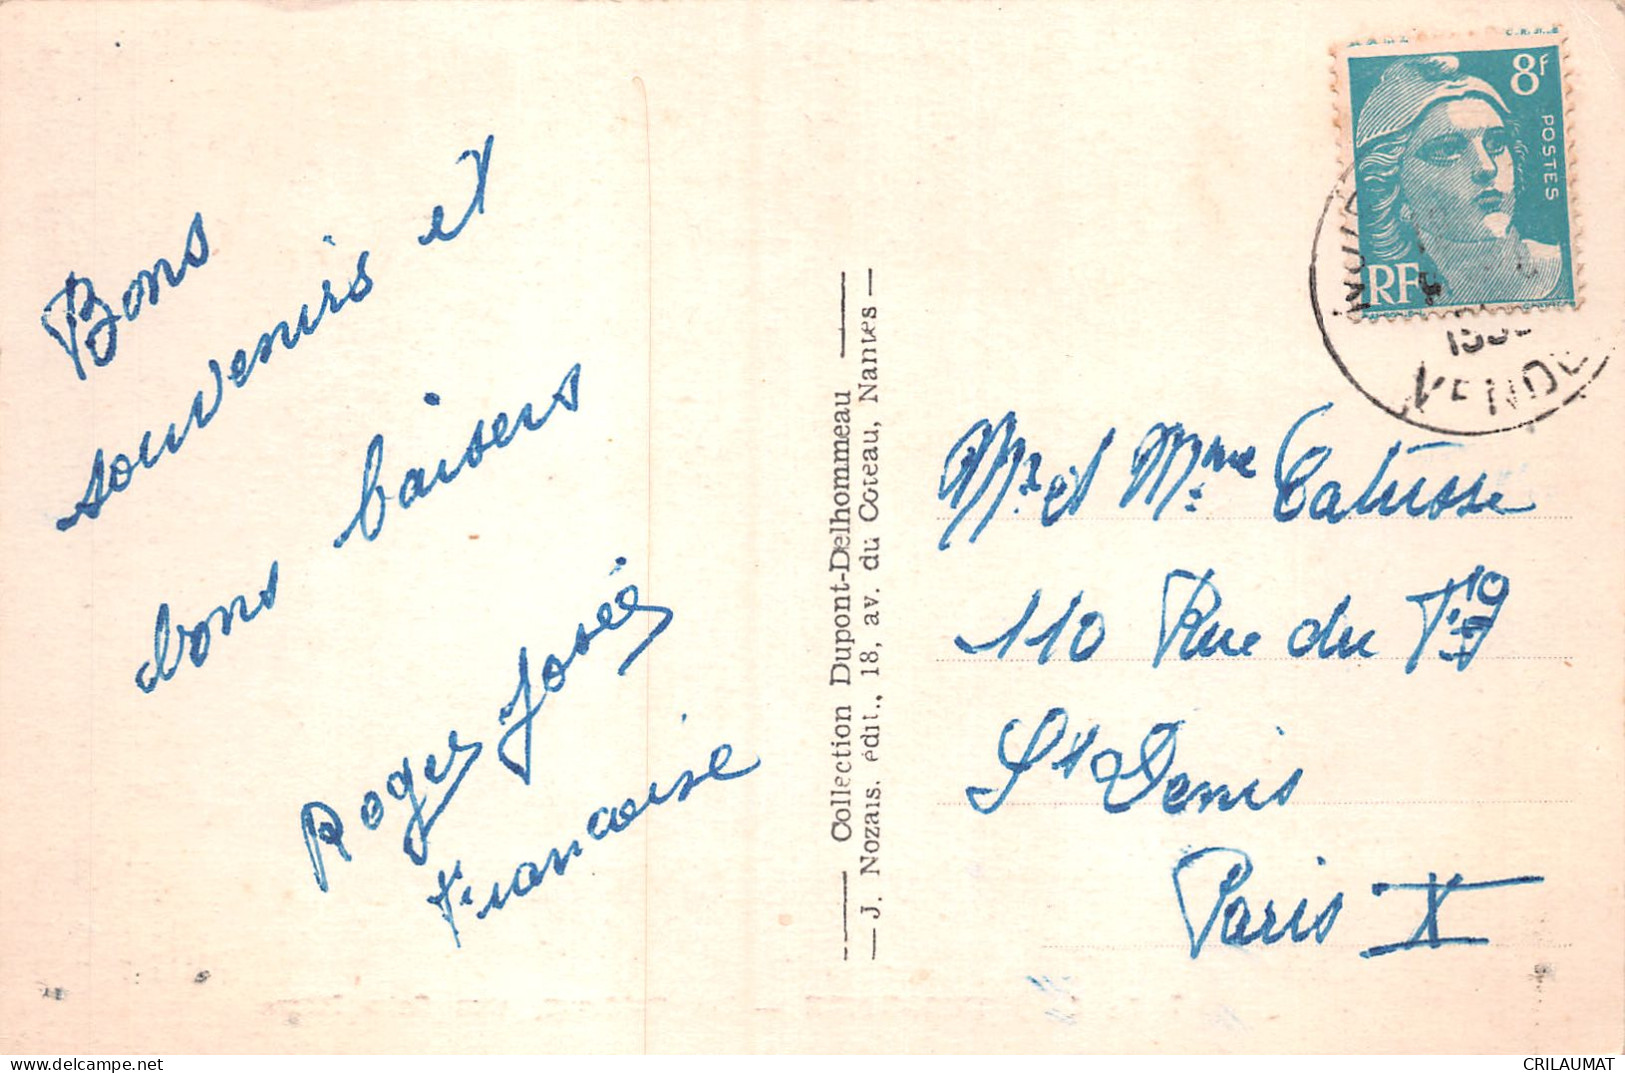 Bons
souvenirs et
bons baisers
Roger Josée
Francoise
Collection Dupont-Delhommeau
J. Nozais, édit., 18, av. du Coteau, Nantes
8f
POSTES
RF
VENDÉE
Mr et Mme Catusse
110 Rue du Fg
St Denis
Paris X
CRILAUMAT